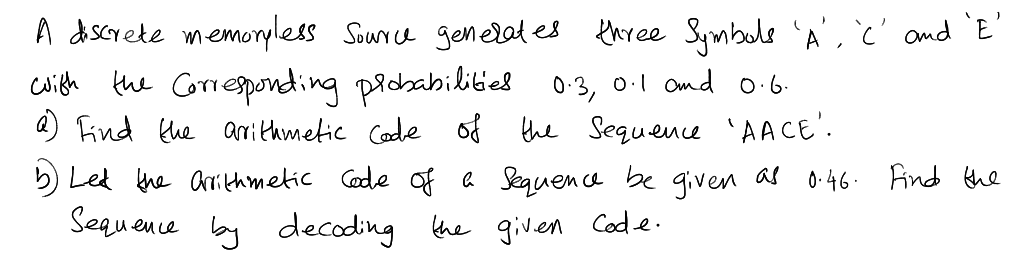 A discrete memoryless source generates three Symbols 'A', 'C' and 'E'
with the Corresponding probabilities 0.3, 0.1 and 0.6.
a) Find the arithmetic code of the Sequence 'AACE'.
b) Let the arithmetic code of a sequence be given as 0.46. Find the
Sequence by decoding the given code.